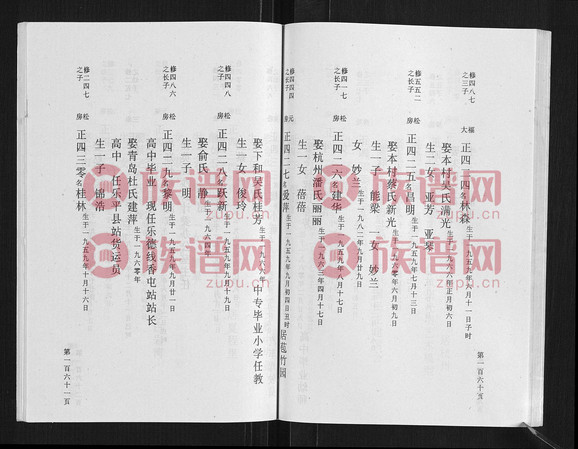 修四八七
之三子
福
大
正四二四名林森生于一九五九年六月十一日子时
娶本村吴氏清光生于一九六一年正月六日
生二女 亚芳 亚琴
修五五二
之长子
松
房
正四二五名昌明生于一九五九年七月十三日
娶本村蔡氏新光生于一九六〇年六月初九日
生一子 能梁 一女 妙兰
女 妙兰生于一九八二年九月廿九日
修四一七
之长子
松
房
正四二六名建华生于一九五九年八月十七日
娶杭州潘氏丽丽生于一九六三年四月十七日
生一女 蓓蓓
修四四四
之长子
元
正四二七名爱萍生于一九五九年九月初四日丑时居苑竹园
第一百六十页
娶下和吴氏桂芳 中专毕业小学任教
生一女 俊玲
修四四八
之子
松
房
正四二八名跃新生于一九五九年九月十九日
娶俞氏 静生于一九六四年
生一子 明
修四八六
之长子
松
房
正四二九名黎明生于一九五九年九月廿一日
高中毕业 现任乐德线香屯站站长
娶青岛杜氏建萍生于一九六〇年
高中 任乐平县站货运员
生一子 锦浩
修二四七
之子
松
房
正四三零名桂林生于一九五九年十月十六日
第一百六十一页
族谱网
zupu.cn
族谱网
zupu.cn
族谱网
zupu.cn
族谱网
zupu.cn